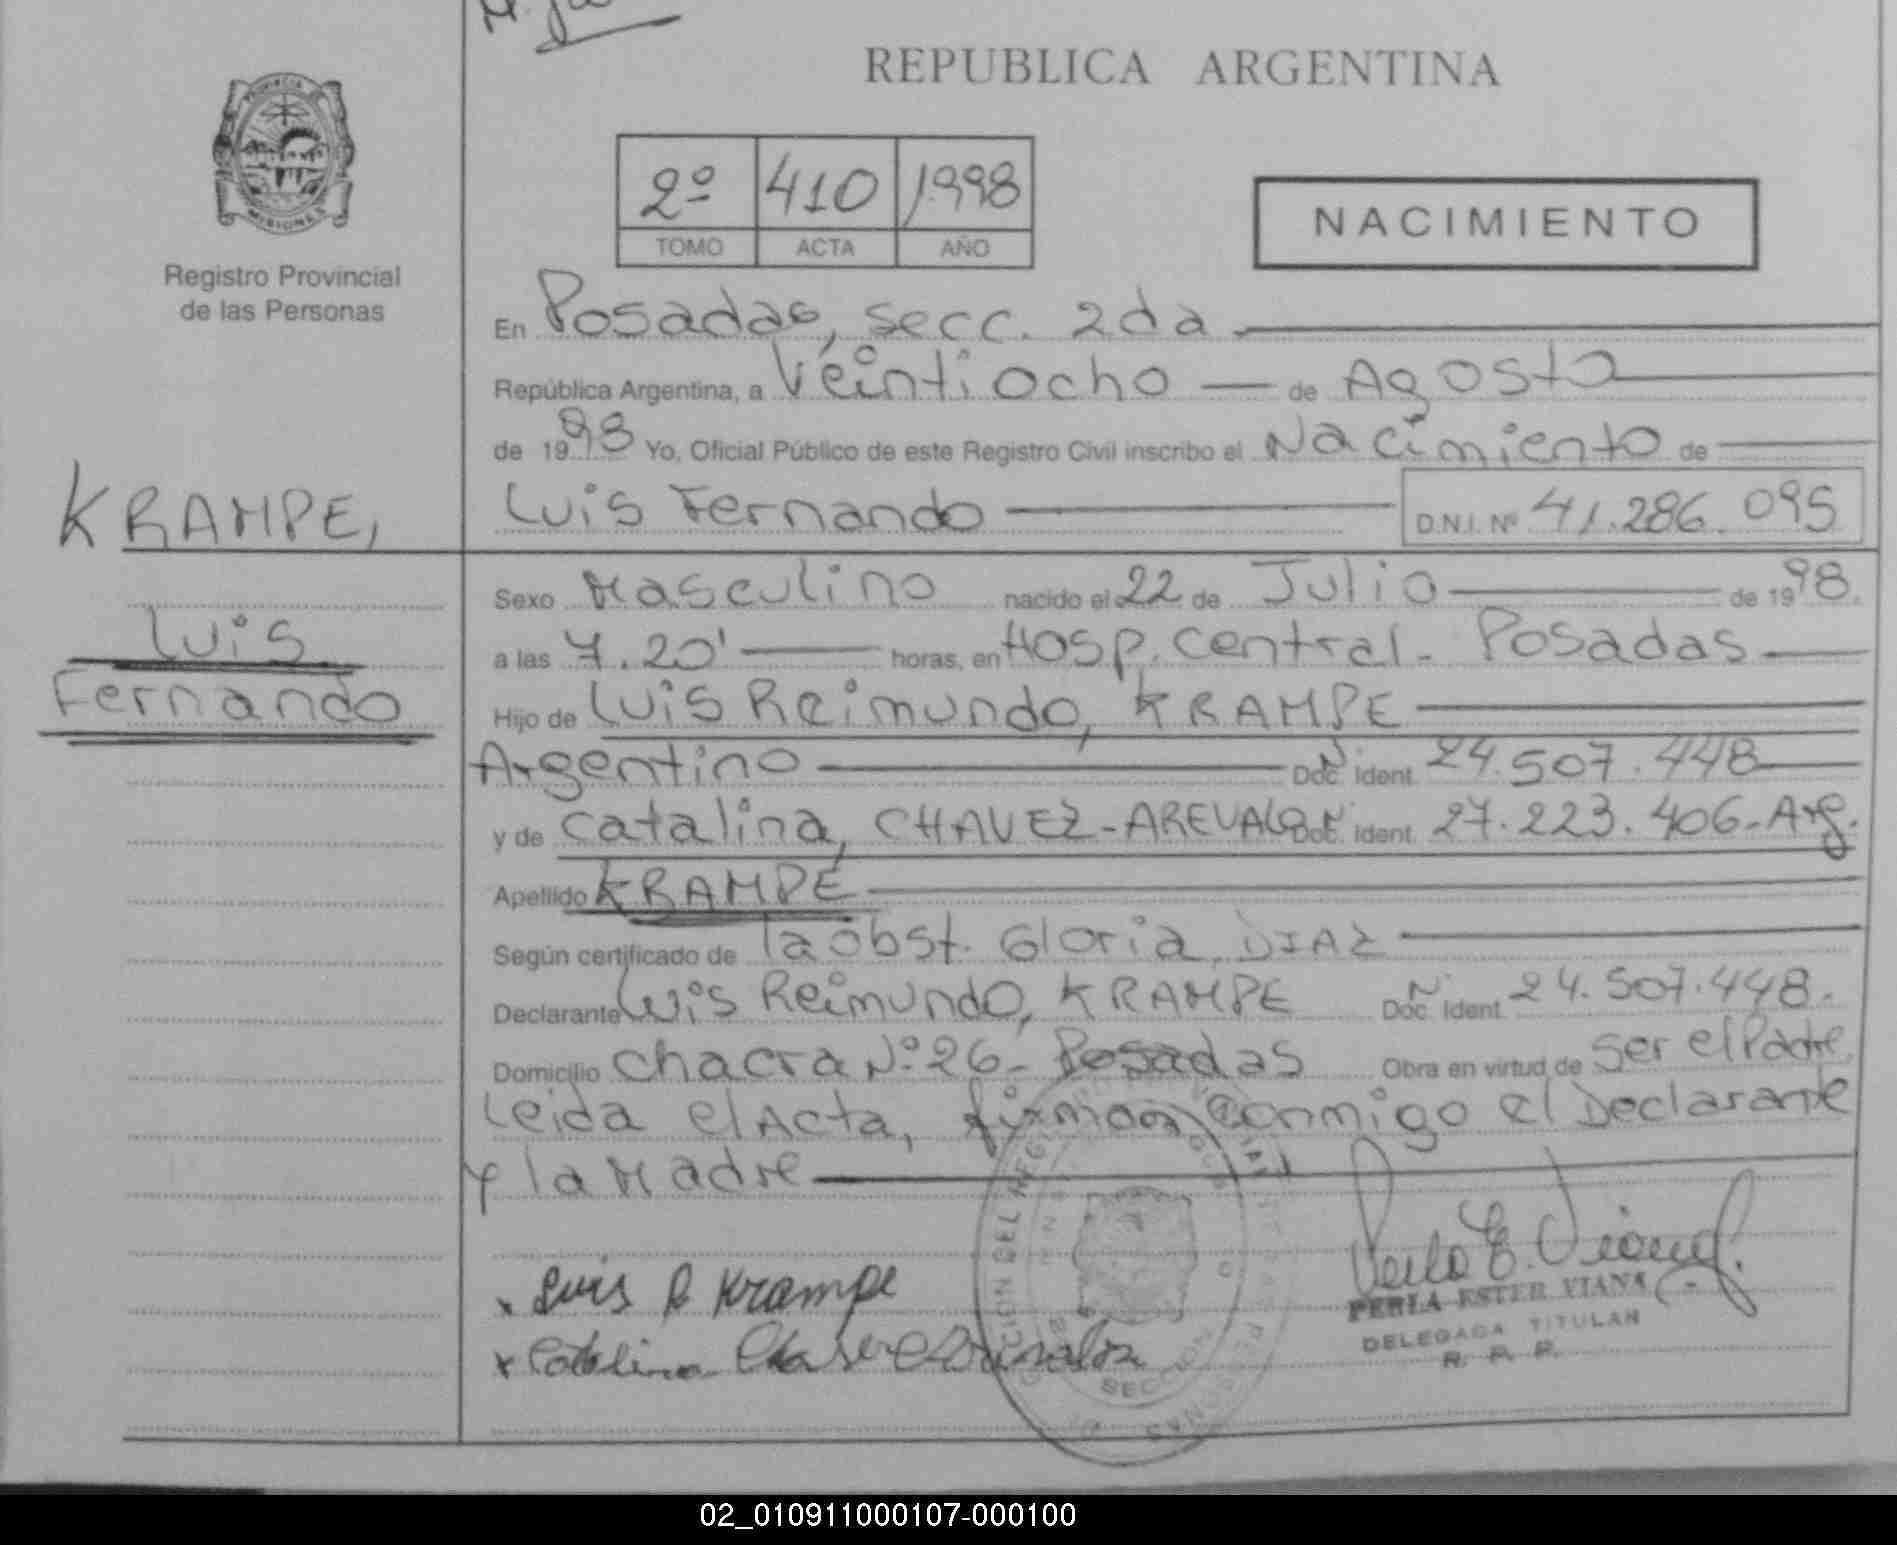 REPUBLICA ARGENTINA
PROVINCIA
MISIONES
Registro Provincial
de las Personas
2º 410 1998
TOMO ACTA AÑO
NACIMIENTO
En Posadas, secc. 2da
República Argentina, a Veintiocho de Agosto
de 1998 Yo, Oficial Público de este Registro Civil inscribo el Nacimiento de
Luis Fernando D.N.I. Nº 41.286.095
KRAMPE,
Luis
Fernando
Sexo Masculino nacido el 22 de Julio de 1998.
a las 7.20' horas, en Hosp. Central - Posadas
Hijo de Luis Reimundo, KRAMPE
Argentino Doc. Ident. 24.507.448
y de Catalina, CHAVEZ-AREVALO Doc. Ident. 27.223.406-Arg.
Apellido KRAMPE
Según certificado de la obst. Gloria, DIAZ
Declarante Luis Reimundo, KRAMPE Doc. Ident. 24.507.448.
Domicilio Chacra Nº 26 - Posadas Obra en virtud de ser el Padre
Leida el Acta, firman conmigo el Declarante
y la Madre
x Luis R Krampe
x Catalina
PERLA ESTER VIANA
DELEGADA TITULAR
R. P. P.
SECCION
02_010911000107-000100